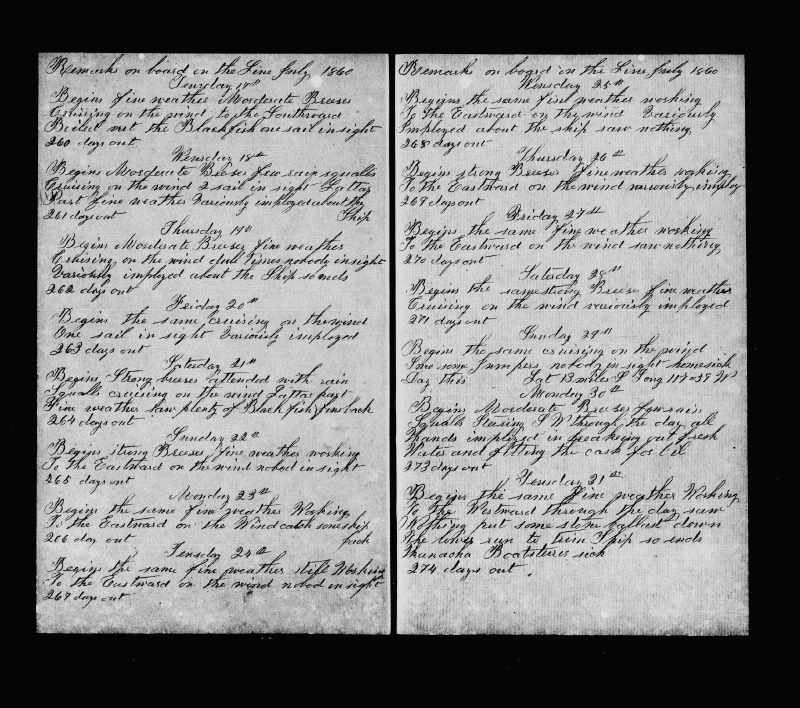 Remarks on board on the Line July 1860
Teusday 17th
Begins fine weather Moderate Breeses
Cruising on the wind to the Southward
Boilet met the Blackfish one sail in sight
260 days out
Wensday 18th
Begins Moderate Breeses few rain squalls
Cruising on the wind 2 sail in sight Lattar
Part fine weather Variously imployed about the
261 days out Ship
Thursday 19th
Begins Moderate Breeses fine weather
Cruising on the wind nobody in sight
Variously imployed about the Ship so ends
262 days out
Friday 20th
Begins the same cruising on the wind
One sail in sight Variously imployed
263 days out
Saterday 21st
Begins Strong breeses attended with rain
Squalls cruising on the wind Lattar part
Fine weather saw plenty of Blackfish finsback
264 days out
Sunday 22nd
Begins strong Breeses fine weather working
To the Eastward on the wind nobod in sight
265 days out
Monday 23rd
Begins the same fine weather Working
To the Eastward on the Wind catch some skip
266 day out jack
Teusday 24th
Begins the same fine weather still Working
To the Eastward on the wind nobod in sight
267 days out
Remarks on board on the Line July 1860
Wensday 25th
Begins the same fine weather working
To the Eastward on the wind Variously
Imployed about the ship saw nothing
268 days out
Thursday 26th
Begins strong Breeses fine weather working
To the Eastward on the wind variously imploy
269 days out
Friday 27th
Begins the same fine weather working
To the Eastward on the wind saw nothing
270 days out
Saterday 28th
Begins the same strong Breeses fine weather
Cruising on the wind variously imployed
271 days out
Sunday 29th
Begins the same cruising on the wind
Saw some Jumpers nobody in sight homesick
Day this Lat 13 miles S Long 117=39 W
Monday 30th
Begins Moderate Breeses few rain
Squalls Stearing S W through the day all
Hands imployed in breaking out fresh
Water and filling the cask for oil
273 days out
Teusday 31st
Begins the same fine weather Working
To The Westward through the day saw
Nothing put some stone ballast down
The lower run to trim Ship so ends
Kanacka Boatsteerer sick
274 days out